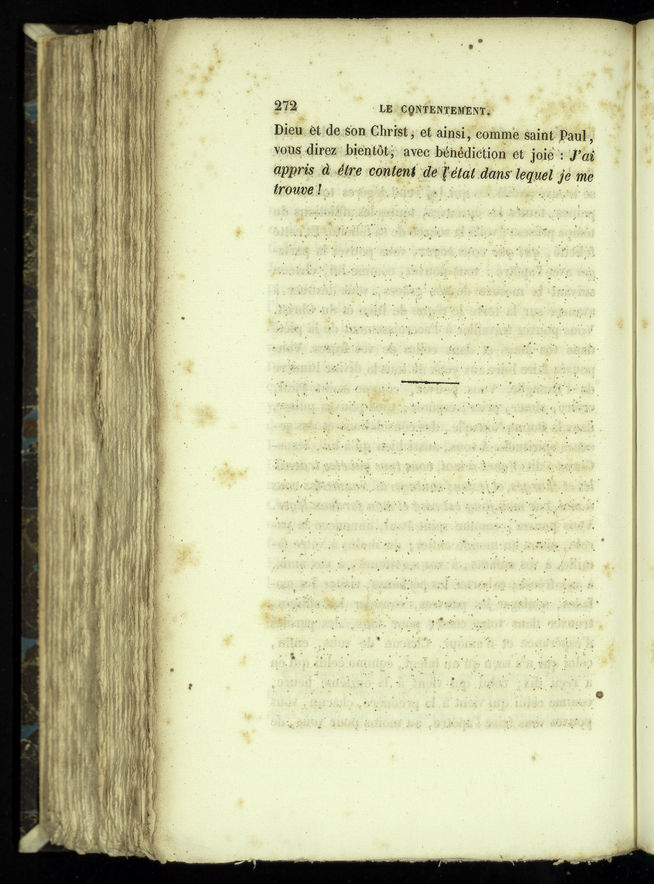 272
LE CONTENTEMENT.
Dieu et de son Christ, et ainsi, comme saint Paul,
vous direz bientôt, avec bénédiction et joie : J'ai
appris à être content de l'état dans lequel je me
trouve !